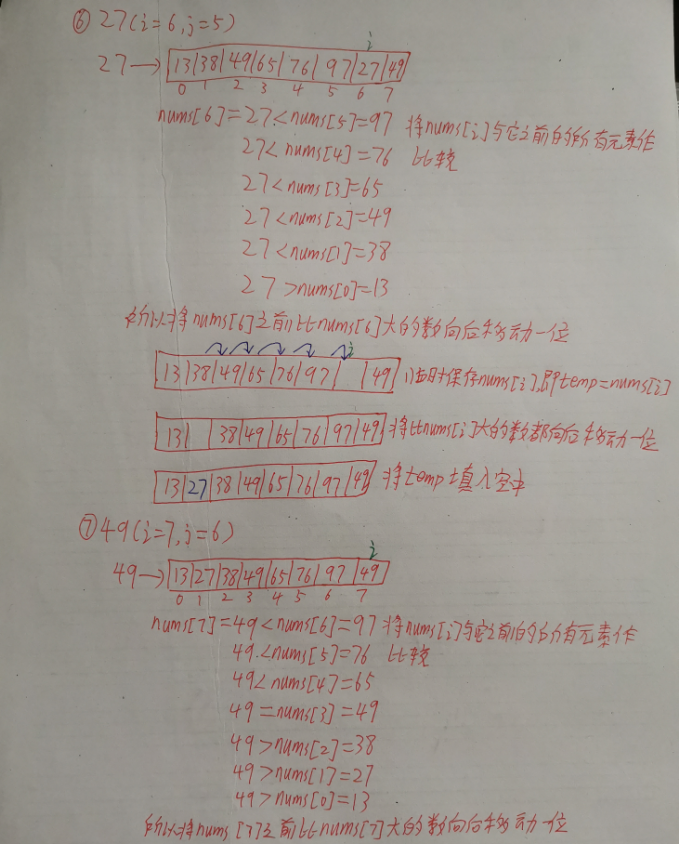 ⑥ 27(i=6,j=5)
i
27→ |13|38|49|65|76|97|27|49|
0 1 2 3 4 5 6 7
nums[6]=27<nums[5]=97 将nums[i]与它之前的所有元素作
27<nums[4]=76 比较
27<nums[3]=65
27<nums[2]=49
27<nums[1]=38
27>nums[0]=13
所以将nums[6]之前比nums[6]大的数向后移动一位
i
|13|38|49|65|76|97| |49| 此时保存nums[i],即temp=nums[i]
|13| |38|49|65|76|97|49| 将比nums[i]大的数都向后移动一位
|13|27|38|49|65|76|97|49| 将temp填入空中
⑦ 49(i=7,j=6)
i
49→ |13|27|38|49|65|76|97|49|
0 1 2 3 4 5 6 7
nums[7]=49<nums[6]=97 将nums[i]与它之前的所有元素作
49<nums[5]=76 比较
49<nums[4]=65
49=nums[3]=49
49>nums[2]=38
49>nums[1]=27
49>nums[0]=13
所以将nums[7]之前比nums[7]大的数向后移动一位